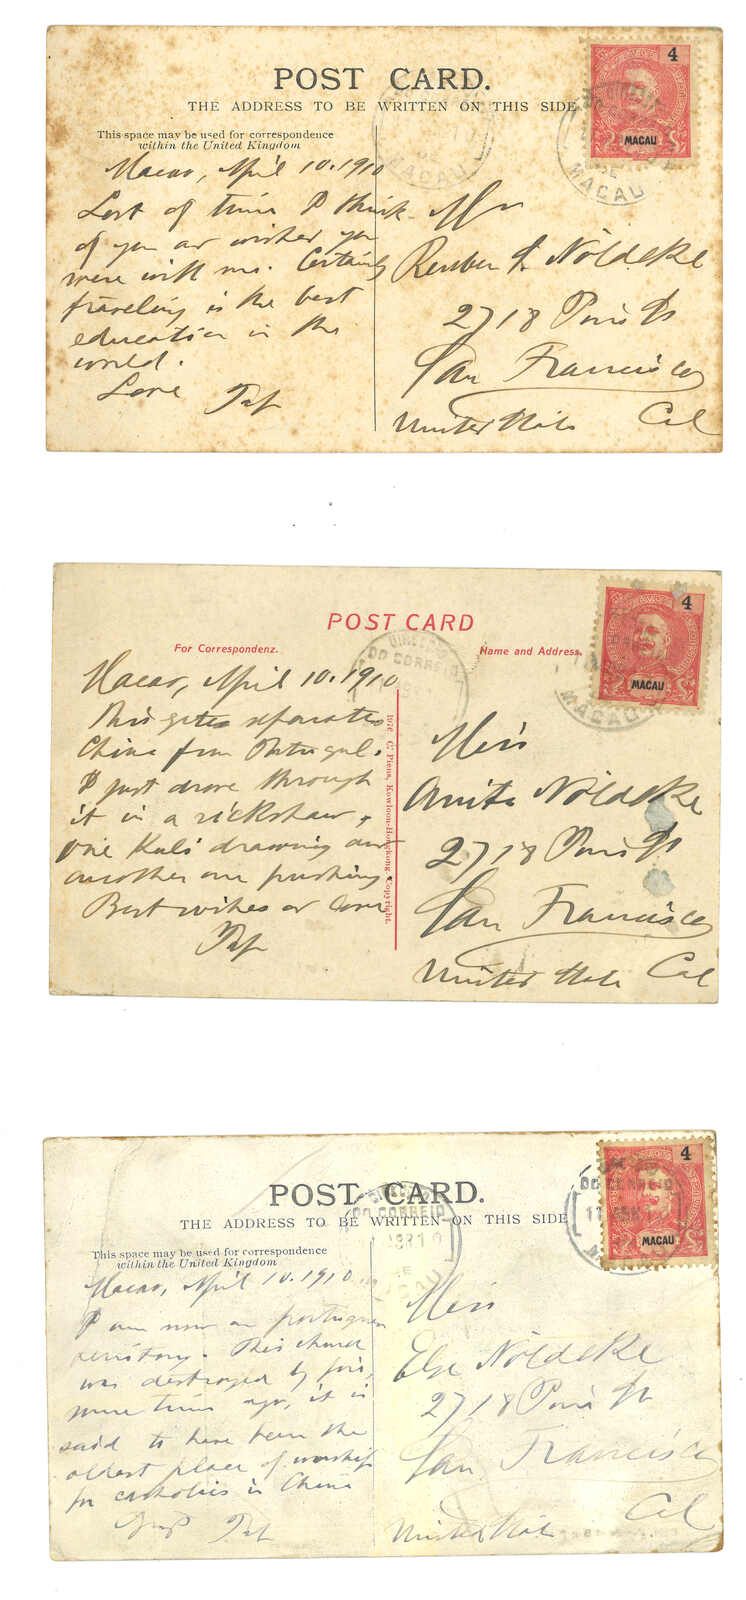 POST CARD.
THE ADDRESS TO BE WRITTEN ON THIS SIDE
This space may be used for correspondence
within the United Kingdom
4
MACAU
MACAU
MACAU
Macao, April 10. 1910
Lost of time I think
of you and wishes you
were with me. Certainly
traveling is the best
education in the
world.
Love
Mr
Reuben Nöldeke
2718 Pine St
San Francisco
Cal
United States
POST CARD
For Correspondenz.
Name and Address.
4
MACAU
DIRECÇÃO
DO CORREIO
MACAU
Macao, April 10. 1910
This gate separates
China from Portugal.
I just drove through
it in a rickshaw,
one Kuli drawing and
another one pushing.
Best wishes and love
Miss
Anita Nöldeke
2718 Pine St
San Francisco
Cal
United States
Kowloon-Hongkong Copyright.
POST CARD.
THE ADDRESS TO BE WRITTEN ON THIS SIDE
This space may be used for correspondence
within the United Kingdom
4
MACAU
DO CORREIO
DO CORREIO
Macao, April 10. 1910
I am now on portuguese
territory. This church
was destroyed by fire,
some time ago, it is
said to have been the
oldest place of worship
for catholics in China
Miss
Else Nöldeke
2718 Pine St
San Francisco
Cal
United States